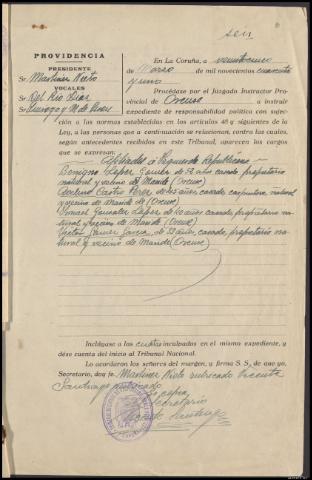 PROVIDENCIA
PRESIDENTE
Sr. Martinez Nieto
VOCALES
Sr. Del Rio Diaz
Sr.
En La Coruña, a veinticinco
de Marzo de mil novecientos cuarenta
y uno.
Procédase por el Juzgado Instructor Pro-
vincial de Orense, a instruir
expediente de responsabilidad política con suje-
ción a las normas establecidas en los artículos 45 y siguientes de la
Ley, a las personas que a continuación se relacionan, contra las cuales,
según antecedentes recibidos en este Tribunal, aparecen los cargos
que se expresan:
Afiliados a Izquierda Republicana
Benigno Lopez de 52 años casado propietario
natural y vecino de Mande (Orense)
Castro Perez de 25 años casado carpintero, natural
y vecino de Mande (Orense)
Gonzalez Lopez de 40 años casado, propietario na-
tural y vecino de Mande (Orense)
Garcia, de 33 años, casado, propietario na-
tural y vecino de Mande (Orense)
Inclúyase a los cuatro inculpados en el mismo expediente, y
dése cuenta del inicio al Tribunal Nacional.
Lo acordaron los señores del margen, y firma S. S., de que yo,
Secretario, doy fe. Martinez Nieto rubricado Vicente
Santiago rubricado
Es copia
Secretario
Vicente Santiago